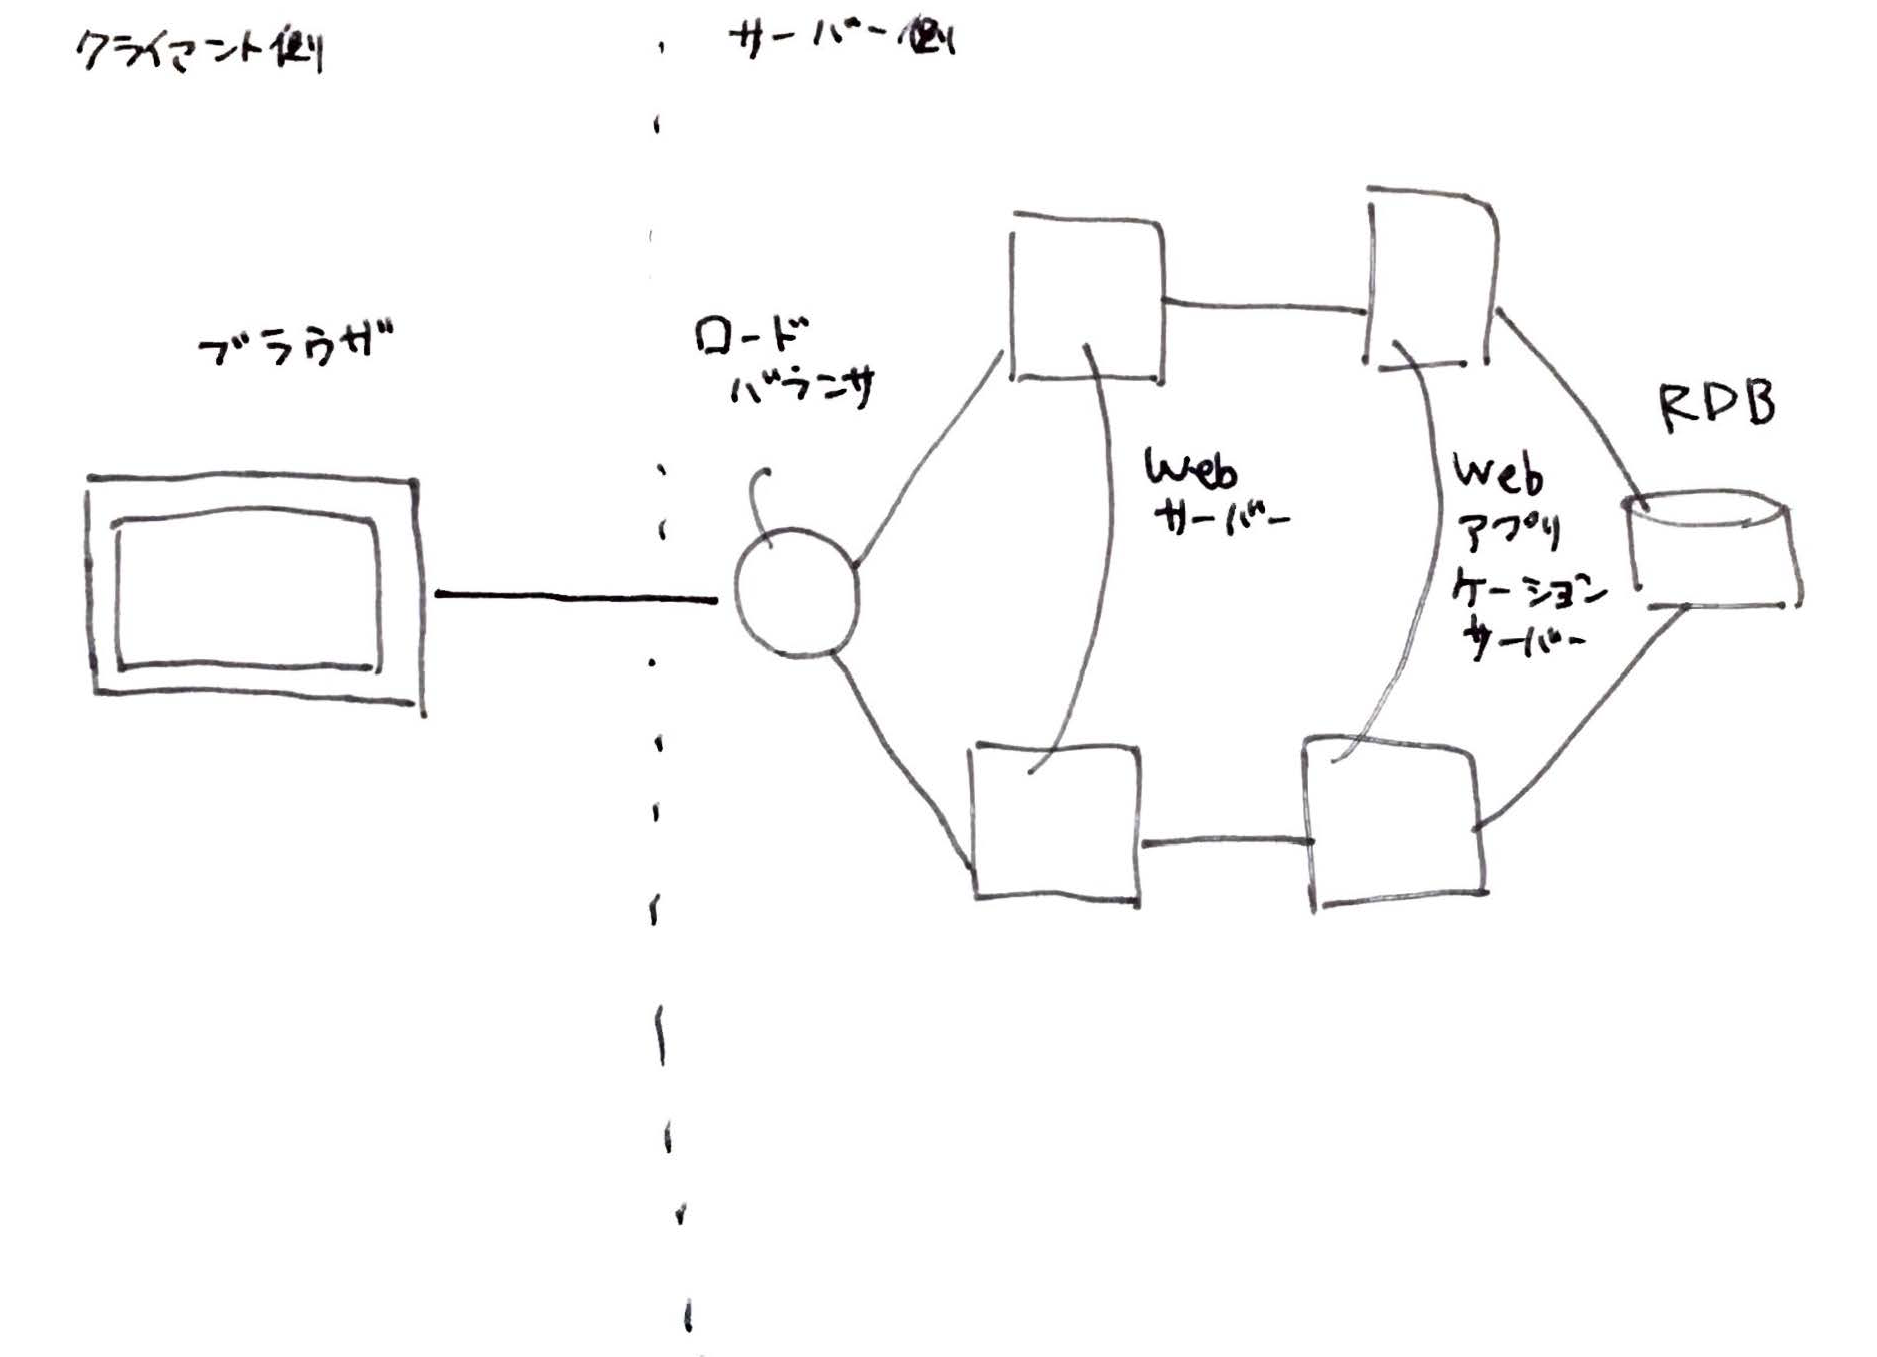 クライアント側
サーバー側
ブラウザ
ロード
バランサ
Web
サーバー
Web
アプリ
ケーション
サーバー
RDB